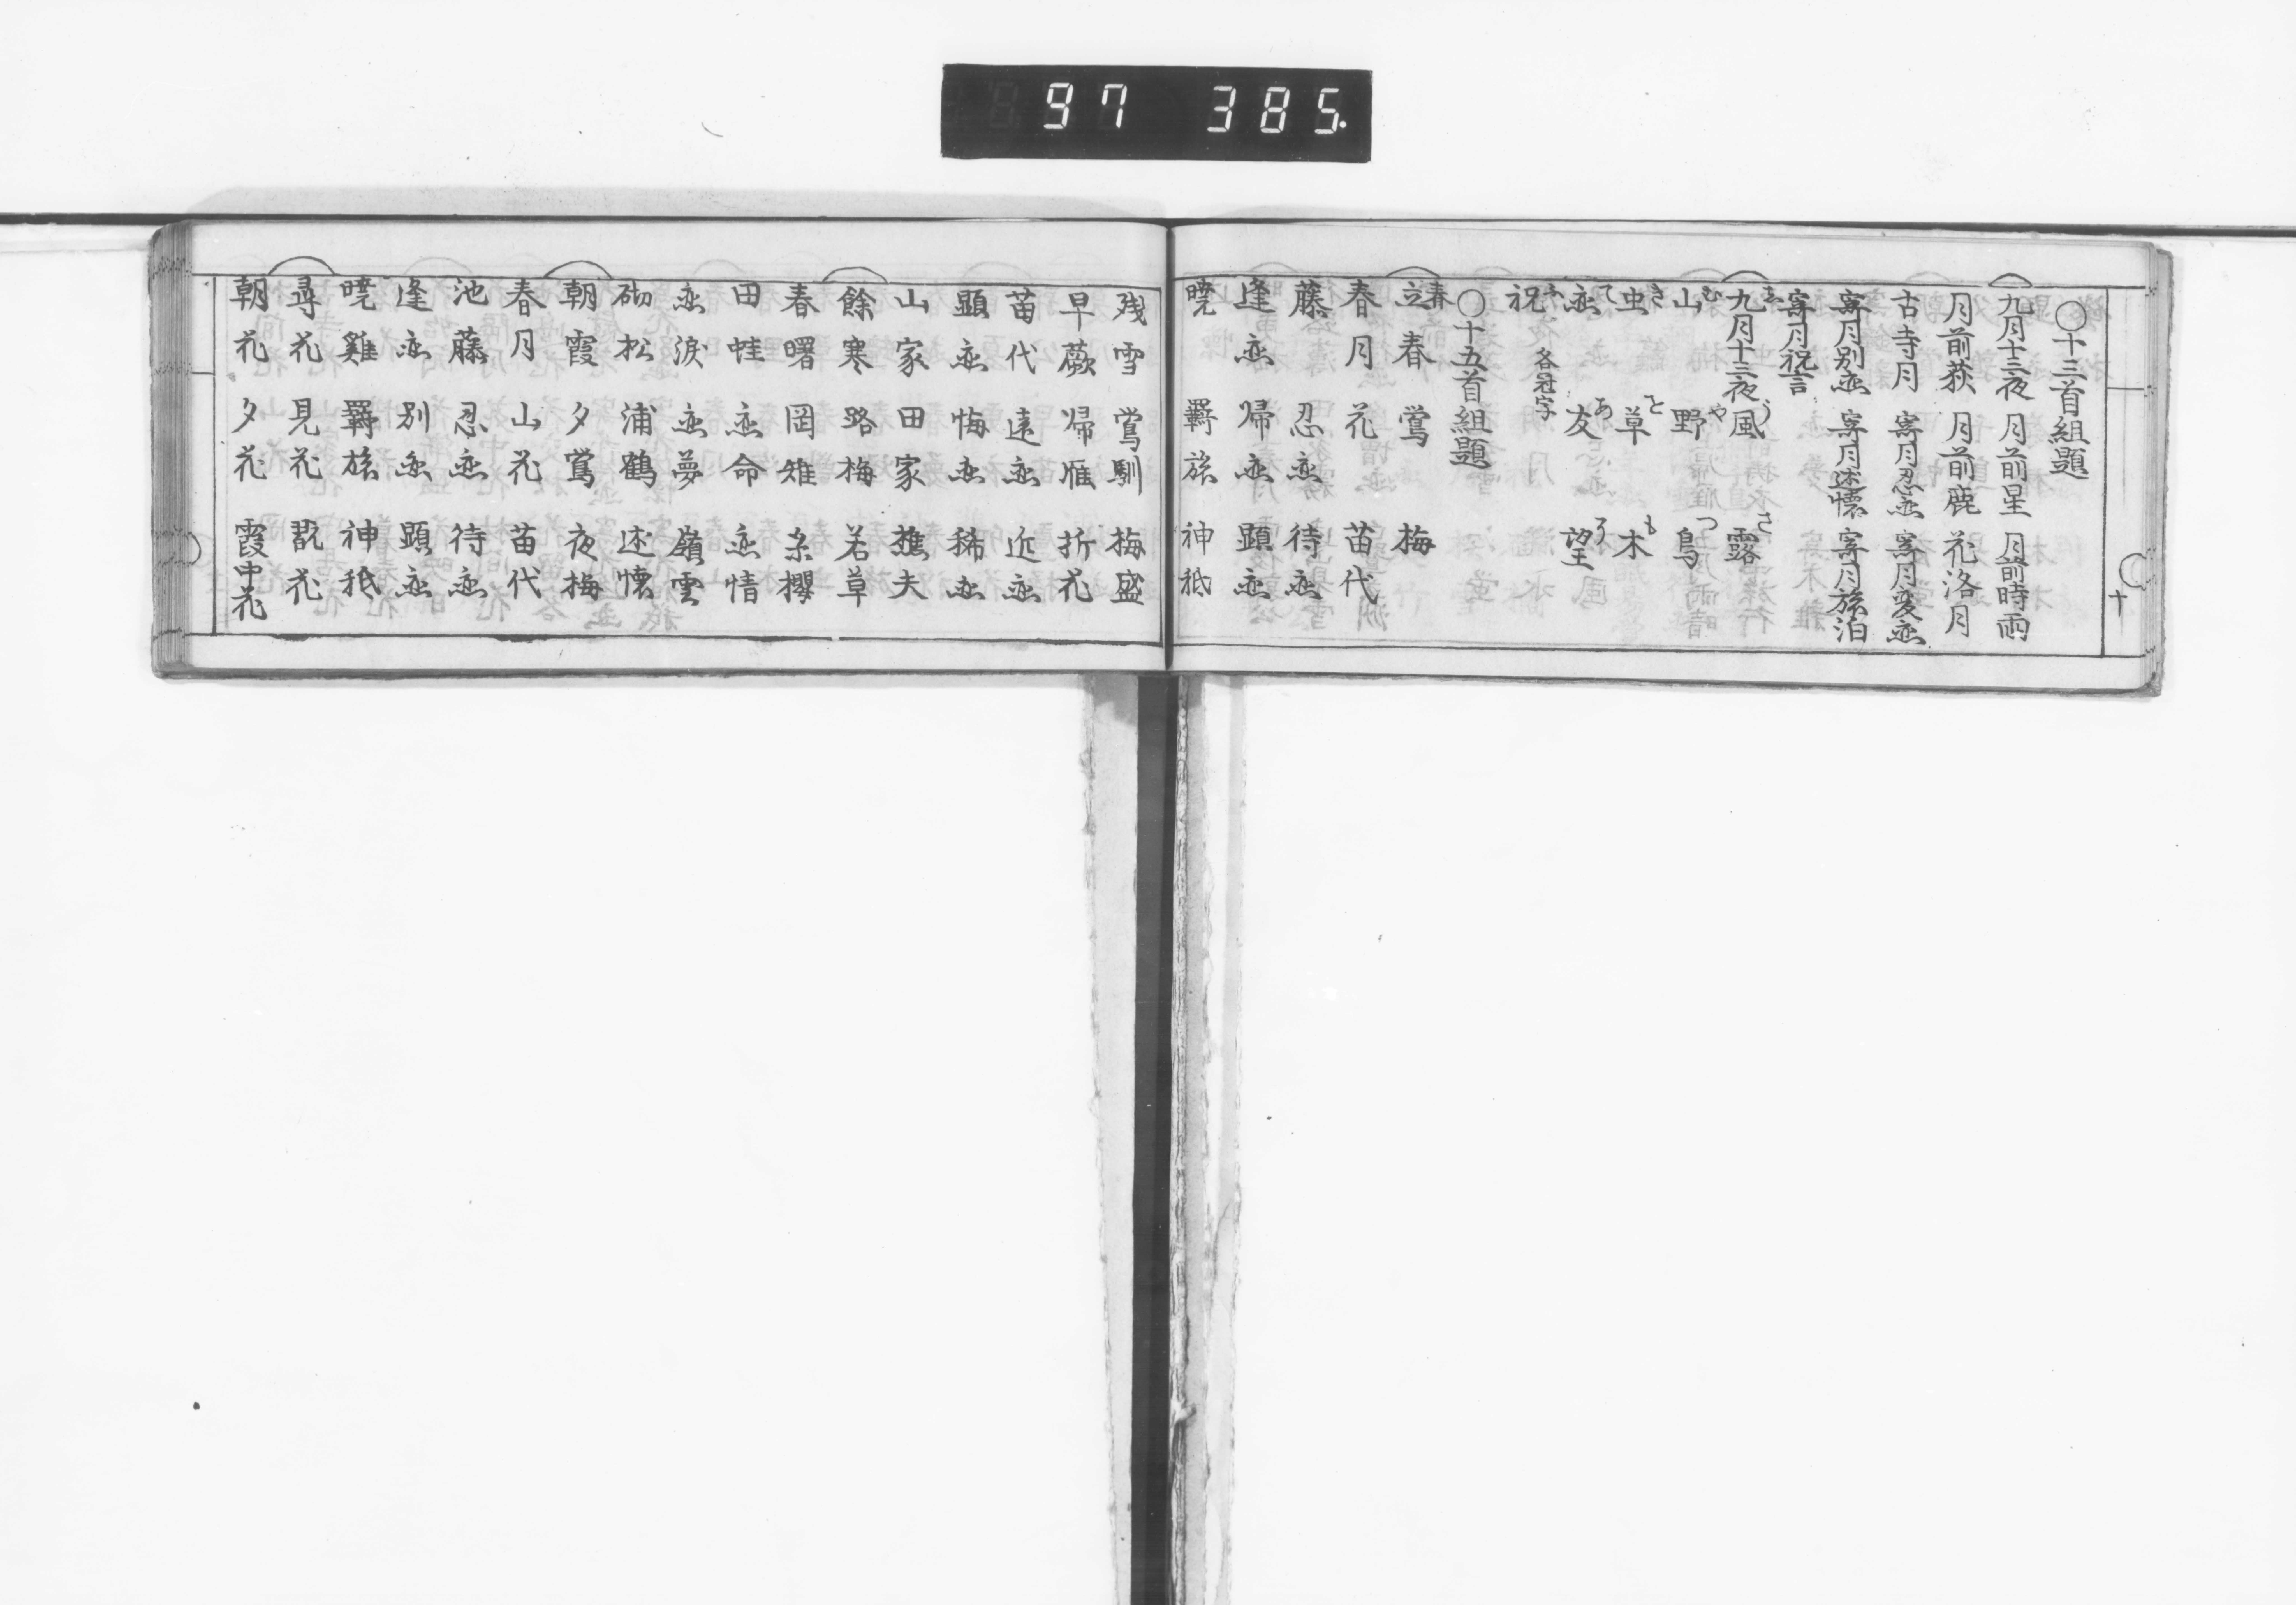 97 385.
○十三首組題
九月十三夜 月前星 月前時雨
月前荻 月前鹿 花洛月
古寺月 寄月忍恋 寄月変恋
寄月別恋 寄月述懐 寄月旅泊
寄月祝言
九月十三夜 風 露
山 野 鳥
虫 草 木
恋 友 望
祝 各冠字
○十五首組題
春
立春 鶯 梅
春月 花 苗代
藤 忍恋 待恋
逢恋 帰恋 顕恋
暁 羇旅 神祇
十
残雪 鶯馴 梅盛
早蕨 帰雁 折花
苗代 遠恋 近恋
顕恋 悔恋 稀恋
山家 田家 樵夫
餘寒 路梅 若草
春曙 岡雉 糸櫻
田蛙 恋命 恋情
恋涙 恋夢 嶺雲
砌松 浦鶴 述懐
朝霞 夕鶯 夜梅
春月 山花 苗代
池藤 忍恋 待恋
逢恋 別恋 顕恋
暁雞 羇旅 神祇
尋花 見花 翫花
朝花 夕花 霞中花